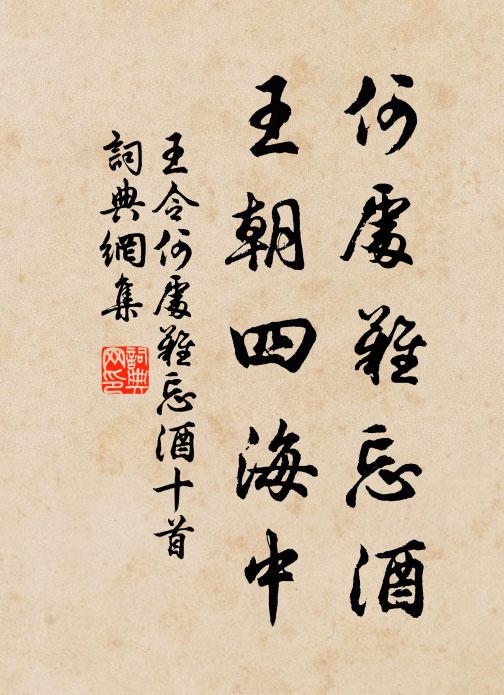 何處難忘酒
王朝四海中
王令何處難忘酒十首
詞典網集
詞典網印